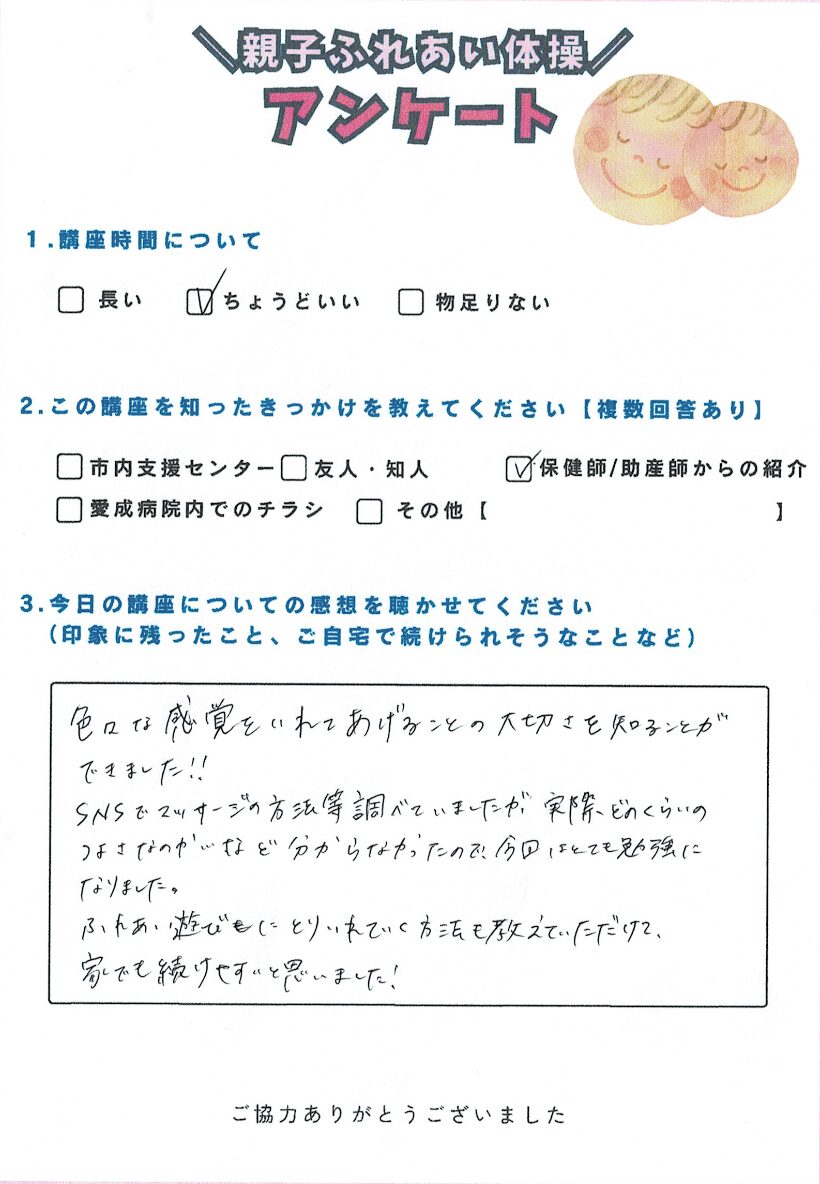 親子ふれあい体操
アンケート
1.講座時間について
□ 長い ☑ ちょうどいい □ 物足りない
2.この講座を知ったきっかけを教えてください【複数回答あり】
□ 市内支援センター □ 友人・知人 ☑ 保健師/助産師からの紹介
□ 愛成病院内でのチラシ □ その他【 】
3.今日の講座についての感想を聴かせてください
(印象に残ったこと、ご自宅で続けられそうなことなど)
色々な感覚をいれてあげることの大切さを知ることが
できました!!
SNSでマッサージの方法等調べていましたが、実際、どのくらいの
つよさなのがいいなど分からなかったので、今回はとても勉強に
なりました。
ふれあい遊びにとりいれていく方法も教えていただけて、
家でも続けやすいと思いました!
ご協力ありがとうございました